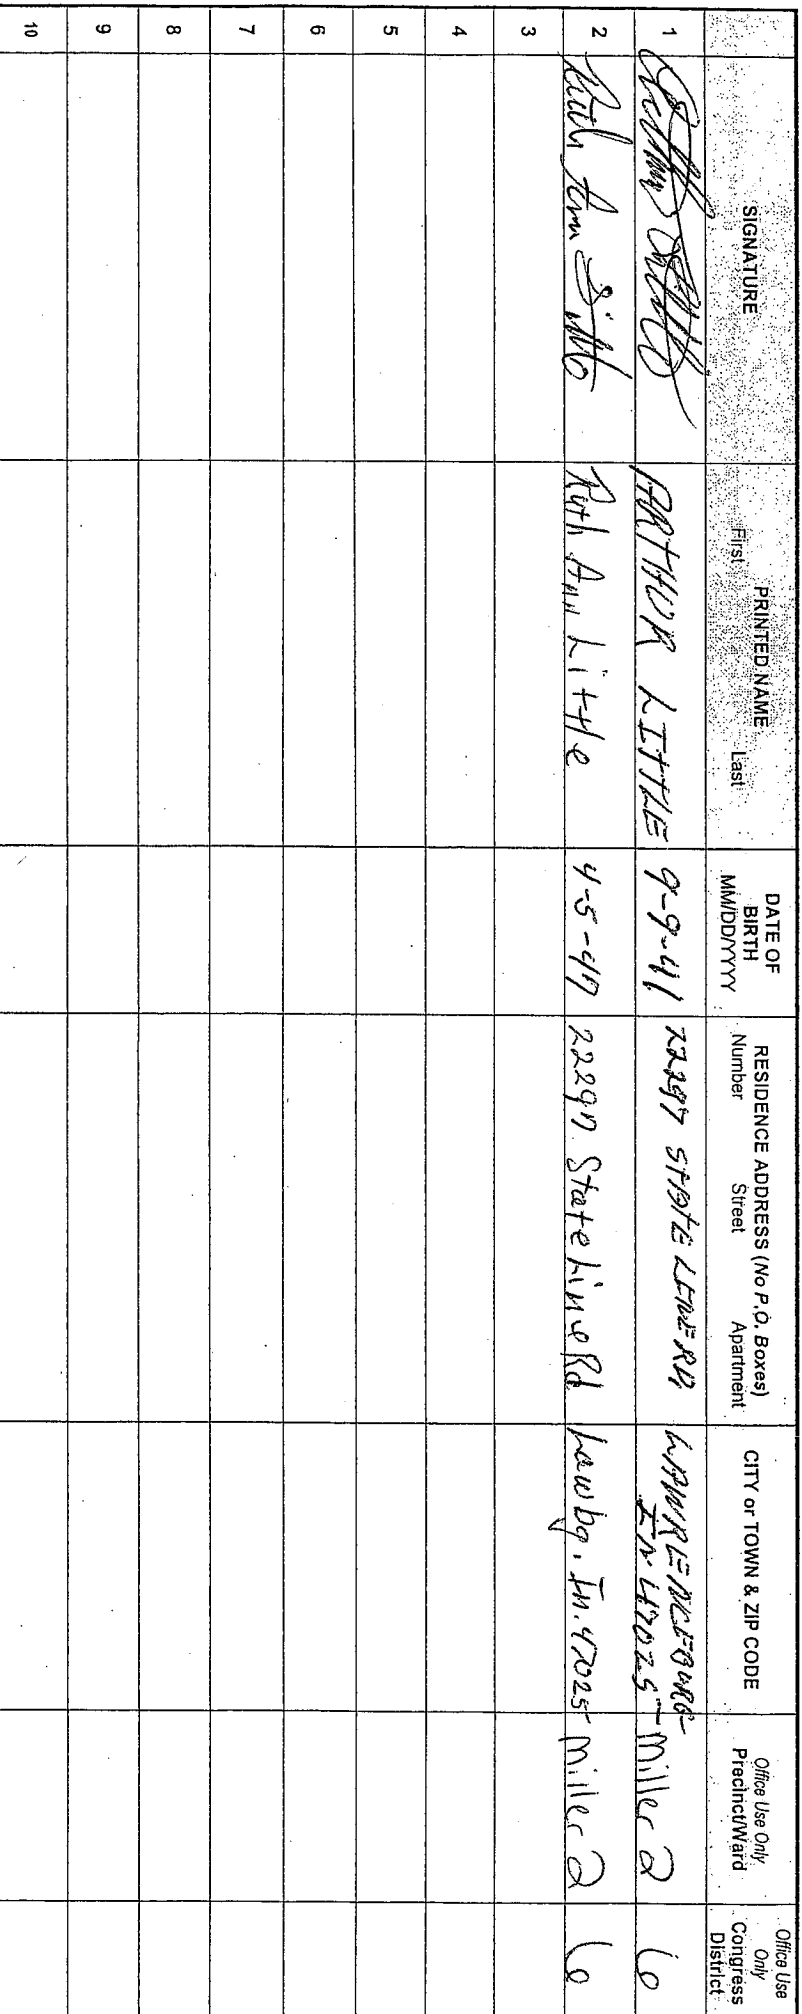 SIGNATURE
PRINTED NAME
First Last
DATE OF
BIRTH
MM/DD/YYYY
RESIDENCE ADDRESS (No P.O. Boxes)
Number Street Apartment
CITY or TOWN & ZIP CODE
Office Use Only
Precinct/Ward
Office Use
Only
Congress
District
1 ARTHUR LITTLE 9-9-41 22297 STATE LINE RD, LAWRENCEBURG-
IN 47025 Miller 2 6
2 Ruth Ann Little Ruth Ann Little 4-5-47 22297 State Line Rd Lawbg. In. 47025 Miller 2 6
3
4
5
6
7
8
9
10